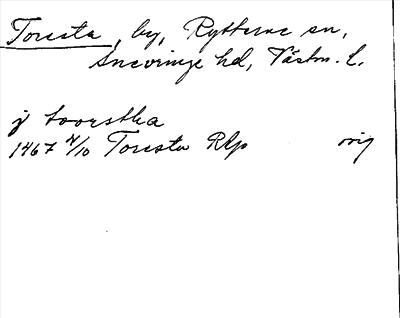 Toresta, by, Rytterne sn,
Snevringe hd, Västm. l.
j toorstha
1467 4/10 Toresta Rlp orig